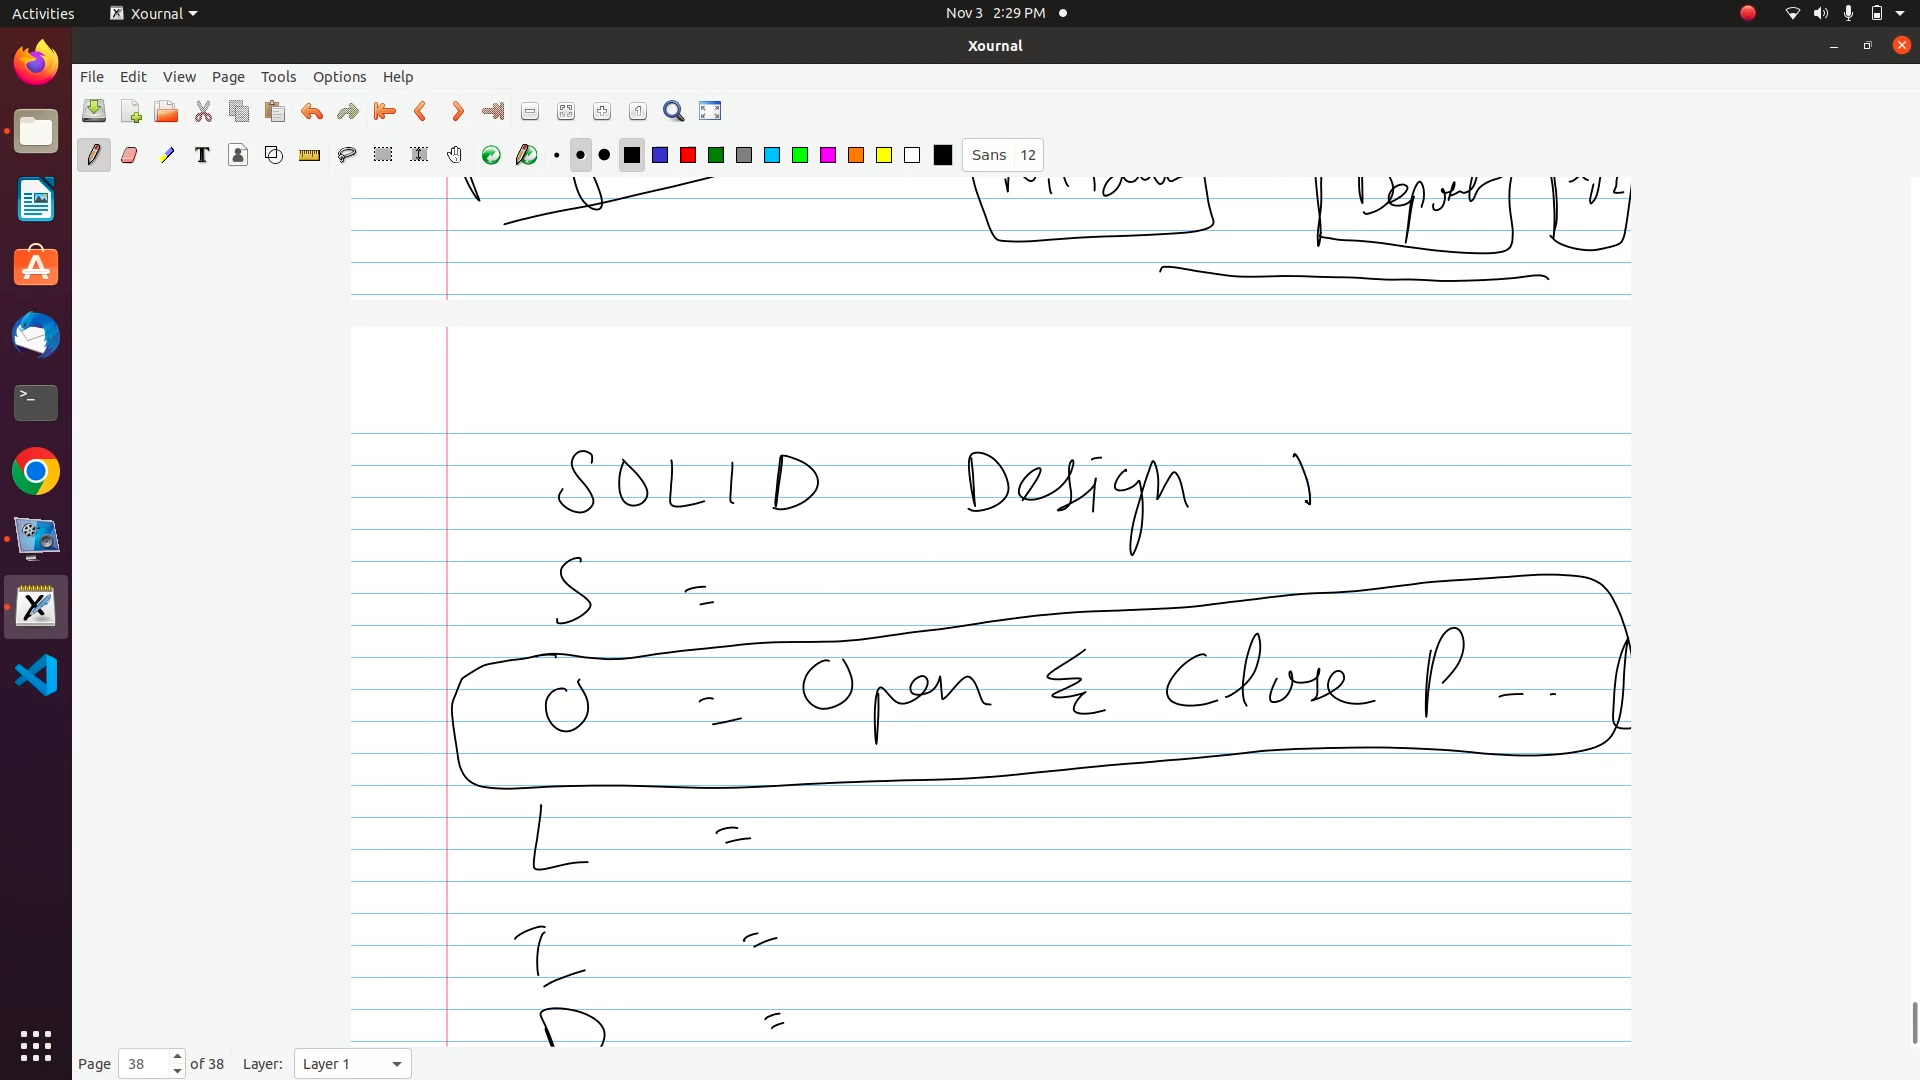 Activities Xournal Nov 3 2:29 PM
Xournal
File Edit View Page Tools Options Help
T Sans 12
SOLID Design
S =
O = Open & Close P - -
L =
I =
D =
Page 38 of 38 Layer: Layer 1